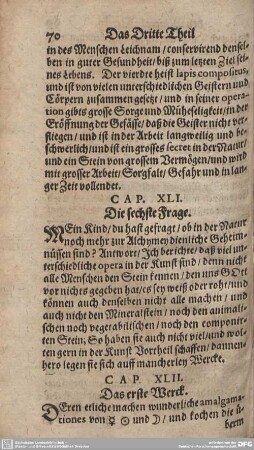 70 Das Dritte Theil
in des Menschen Leichnam / conservirend densel-
ben in guter Gesundheit / biß zum letzten Ziel sei-
nes Lebens. Der vierdte heist lapis compositus,
und ist von vielen unterschiedlichen Geistern und
Cörpern zusammen gesetz / und in seiner opera-
tion gibts grosse Sorge und Müheseligkeit / in der
Eröffnung der Gefässe / daß die Geister nicht ver-
fliegen / und ist in der Arbeit langweilig und be-
schwerlich / und ist ein grosses secret in der Natur /
und ein Stein von grossem Vermögen / und wird
mit grosser Arbeit / Sorgfalt / Gefahr und in lan-
ger Zeit vollendet.
CAP. XLI.
Die sechste Frage.
MEin Kind / du hast gefragt / ob in der Natur
noch mehr zur Alchymey dienliche Geheim-
nüssen sind? Antwort / Ich berichte / daß viel un-
terschiedliche opera in der Kunst sind / denn nicht
alle Menschen den Stein kennen / den uns GOtt
vor nichts gegeben hat / es sey weiß oder roht / und
können auch denselben nicht alle machen / und
auch nicht den Mineralstein / noch den animali-
schen noch vegetabilischen / noch den componir-
ten Stein / So haben sie auch nicht viel / und wol-
ten gern in der Kunst Vortheil schaffen / dannen-
hero legen sie sich auff mancherley Wercke.
CAP. XLII.
Das erste Werck.
DEren etliche machen wunderliche amalgama-
tiones von ☿ ☉ und ☽ / und kochen die ü-
berm